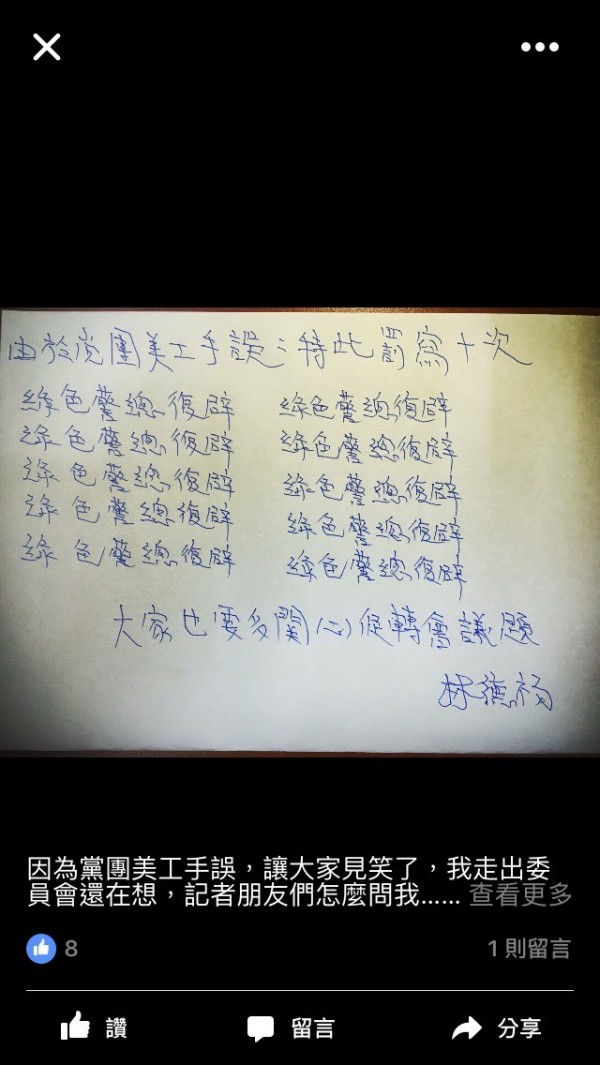 由於党團美工手誤：特此罰寫十次
綠色警總復辟
綠色警總復辟
綠色警總復辟
綠色警總復辟
綠色警總復辟
綠色警總復辟
綠色警總復辟
綠色警總復辟
綠色警總復辟
綠色警總復辟
大家也要多關心促轉會議題
林德福
因為黨團美工手誤，讓大家見笑了，我走出委
員會還在想，記者朋友們怎麼問我...... 查看更多
8
1 則留言
讚
留言
分享